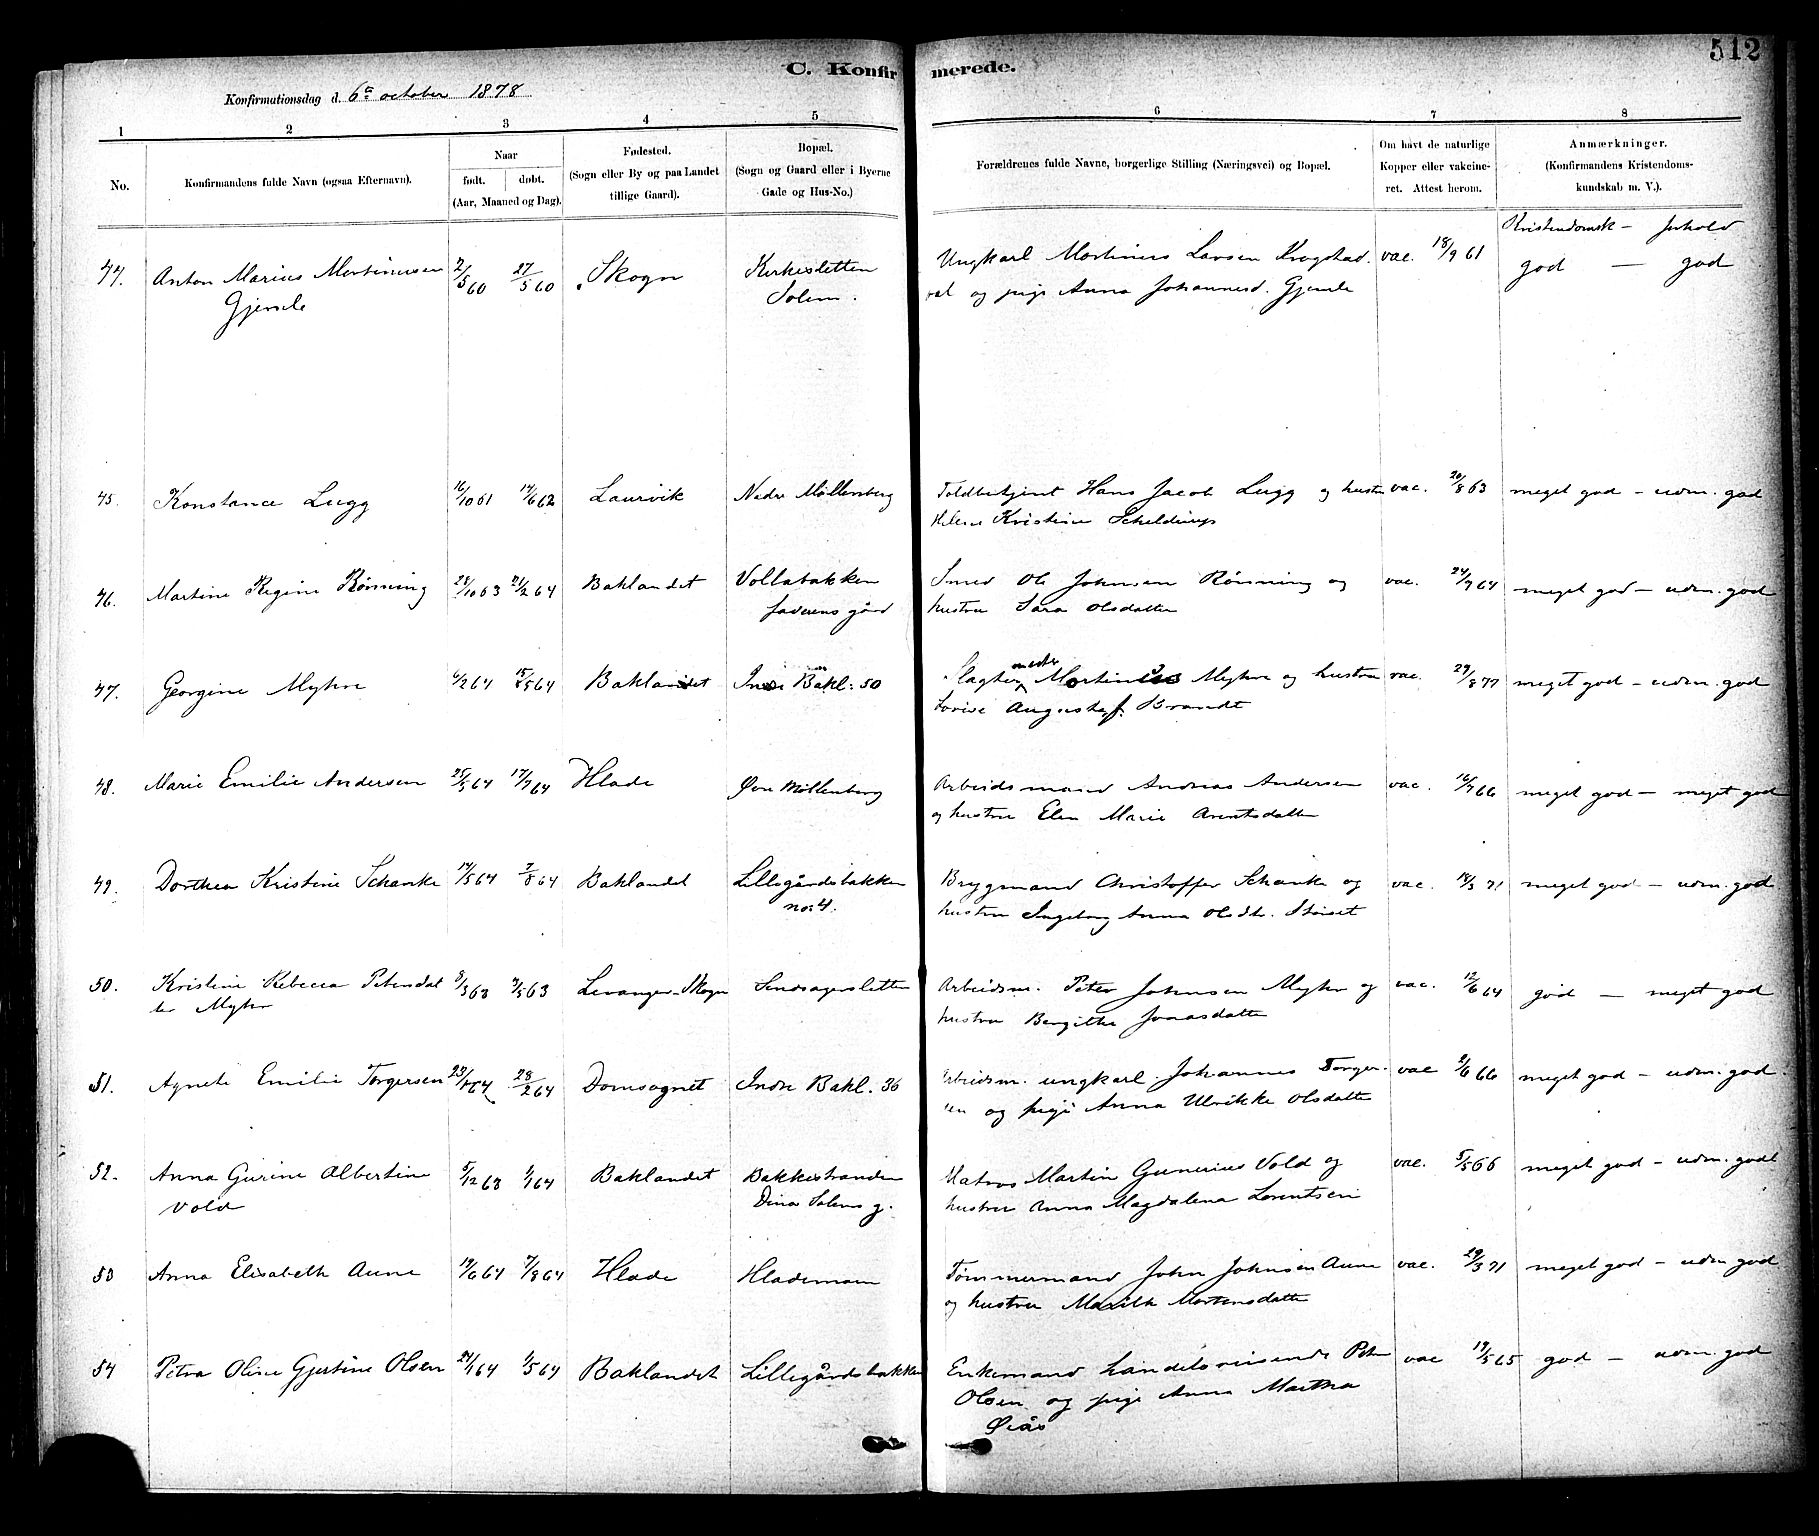 512
C. Konfirmerede.
Konfirmationsdag d. 6te october 1878
1 2 3 4 5 6 7 8
No.
Konfirmandens fulde Navn (ogsaa Efternavn).
Naar
født. døbt.
(Aar, Maaned og Dag).
Fødested.
(Sogn eller By og paa Landet
tillige Gaard).
Bopæl.
(Sogn og Gaard eller i Byerne
Gade og Hus-No.)
Forældrenes fulde Navne, borgerlige Stilling (Næringsvei) og Bopæl.
Om havt de naturlige
Kopper eller vakcine-
ret. Attest herom.
Anmærkninger.
(Konfirmandens Kristendoms-
kundskab m. V.).
Kristendomsk – forhold
44. Anton Marius Martinusen 2/5 60 27/5 60 Skogn Kirkesletten Ungkarl Martinus Larsen Krogstad vac. 18/9 61 god — god
Gjemle Solem. og pige Anna Johannesd. Gjemle
45. Konstance Lugg 16/10 61 14/6 62 Laurvik Nedre Møllenberg Toldbetjent Hans Jacob Lugg og hustru vac. 20/8 63 meget god – udm. god
Kristine Schelderup
46. Martine Regine Rønning 28/10 63 21/2 64 Baklandet Vollabakken Smed Ole Johnsen Rønning og vac. 24/9 64 meget god – udm. god
gård hustru Sara Olsdatter
47. Georgine Myhre 6/2 64 15/5 64 Baklandet Indre Bakl: 50 Slagtermester Martinus Myhre og hustru vac. 29/8 77 meget god – udm. god
Lovise Augusta f. Brandt
48. Marie Emilie Andersen 25/5 64 17/7 64 Hlade Øvre Møllenberg Arbeidsmand Andreas Andersen vac. 16/7 66 meget god – meget god
og hustru Elen Marie Arentsdatter
49. Dorthea Kristine Schanke 14/5 64 7/8 64 Baklandet Lillegårdsbakken Brygmand Christoffer Schanke og vac. 18/3 71 meget god – udm. god
no: 4. hustru Ingeborg Anna Olsdtr. Støiset
50. Kristine Rebecca Petersdat 8/3 63 3/5 63 Levanger-Skogn Sendsagersletten Arbeidsm. Peter Johnsen Myhr og vac. 12/6 64 god — meget god
ter Myhr hustru Bergithe Jonasdatter
51. Agnete Emilie Torgersen 23/1 64 28/2 64 Domsognet Indre Bakl. 36 Arbeidsm. ungkarl Johannes Torger- vac 2/6 66 meget god – udm. god.
sen og pige Anna Ulrikke Olsdatter
52. Anna Gurine Albertine 5/12 63 1/1 64 Baklandet Bakkestranden Matros Martin Gunerius Vold og vac. 5/5 66 meget god – udm. godt
Vold Dina Solems g. hustru Anna Magdalena Lorentsen
53 Anna Elisabeth Aune 19/6 64 7/8 64 Hlade Hlademoen Tømmermand John Johnsen Aune vac. 29/3 71 meget god – udm. god
og hustru Marith Mortensdatter
54 Petra Oline Gjertine Olsen 24/1 64 1/5 64 Baklandet Lillegårdsbakken Enkemand handelsreisende Peter vac 19/5 65 god – udm. god
Olsen og pige Anna Martha
Øiås